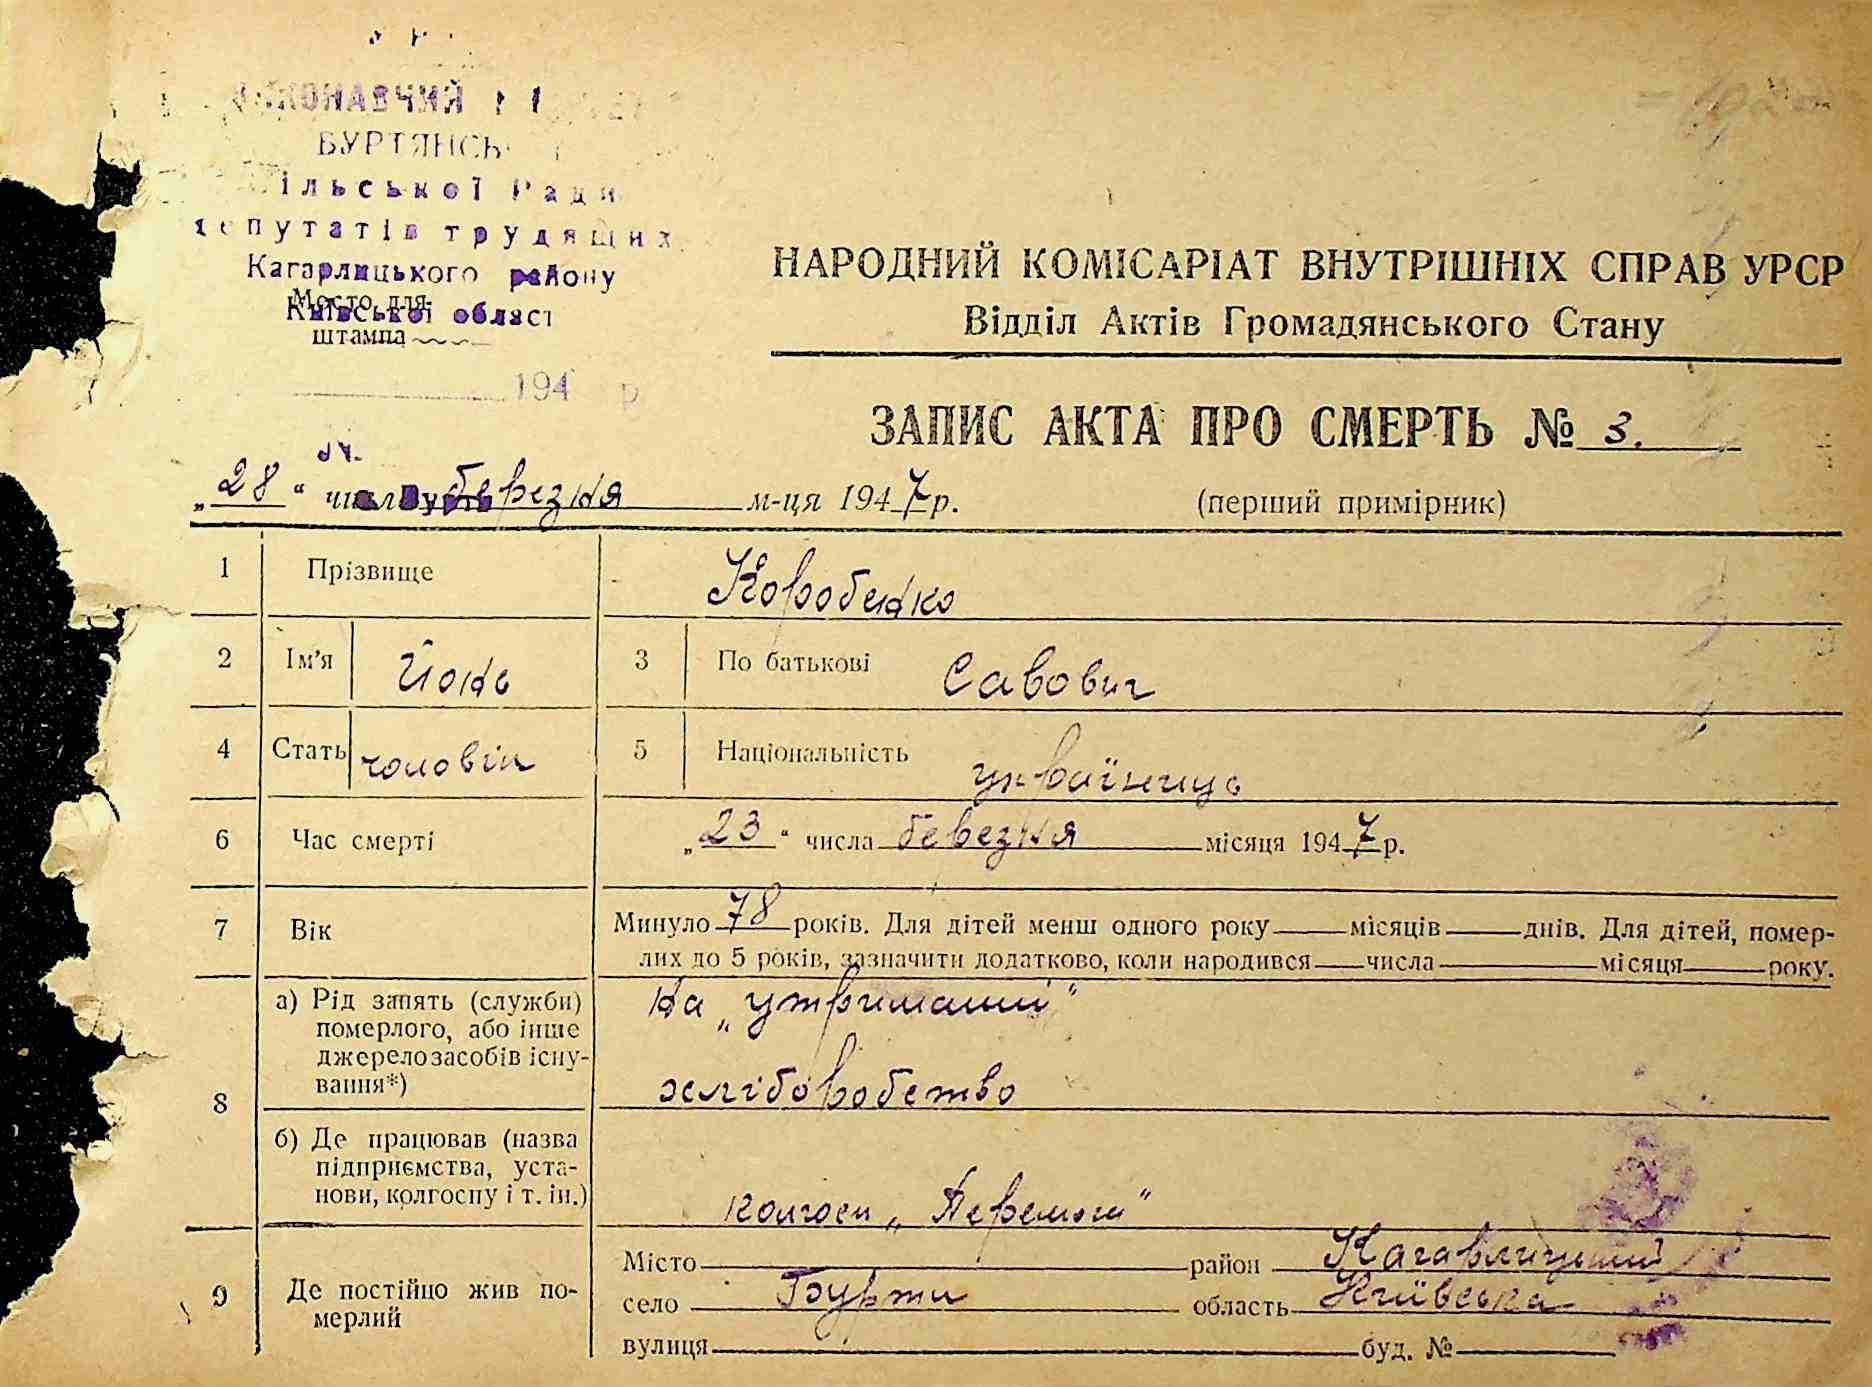 ВИКОНАВЧИЙ
БУРТЯНСЬ
ільської Ради
депутатів трудящих
Кагарлицького району
Київської області
Место для
штампа
194 р
НАРОДНИЙ КОМІСАРІАТ ВНУТРІШНІХ СПРАВ УРСР
Відділ Актів Громадянського Стану
ЗАПИС АКТА ПРО СМЕРТЬ № 3.
„28“ числа березня м-ця 1947 р.
(перший примірник)
1 Прізвище Коробенко
2 Ім'я Йонь 3 По батькові Савович
4 Стать чоловік 5 Національність українець
6 Час смерті „23“ числа березня місяця 1947 р.
7 Вік Минуло 78 років. Для дітей менш одного року місяців днів. Для дітей, помер-
лих до 5 років, зазначити додатково, коли народився числа місяця року.
8 а) Рід занять (служби)
померлого, або інше
джерело засобів існу-
вання*)
на „утриманні“
хліборобство
б) Де працював (назва
підприємства, уста-
нови, колгоспу і т. ін.)
колгосп „Перемоги“
9 Де постійно жив по-
мерлий
Місто район Кагарлицький
село Бурти область Київська
вулиця буд. №